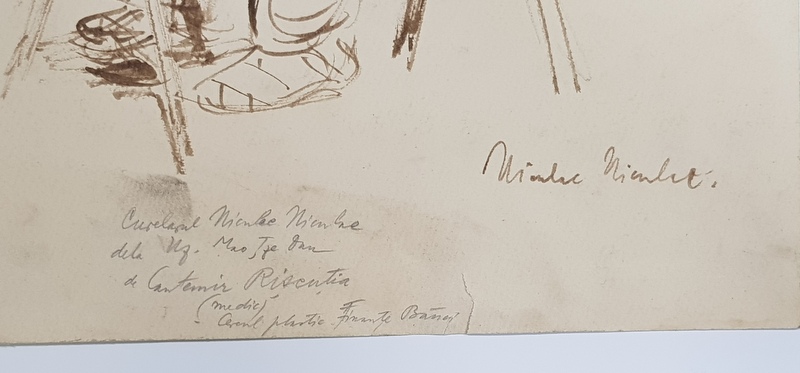 Nicolae Nicolae.
Curelarul Nicolae Nicolae
dela Uz. Mao Tze Dun
de Cantemir Rîșcuția
(medic)
- Cercul plastic Finanțe Bănci